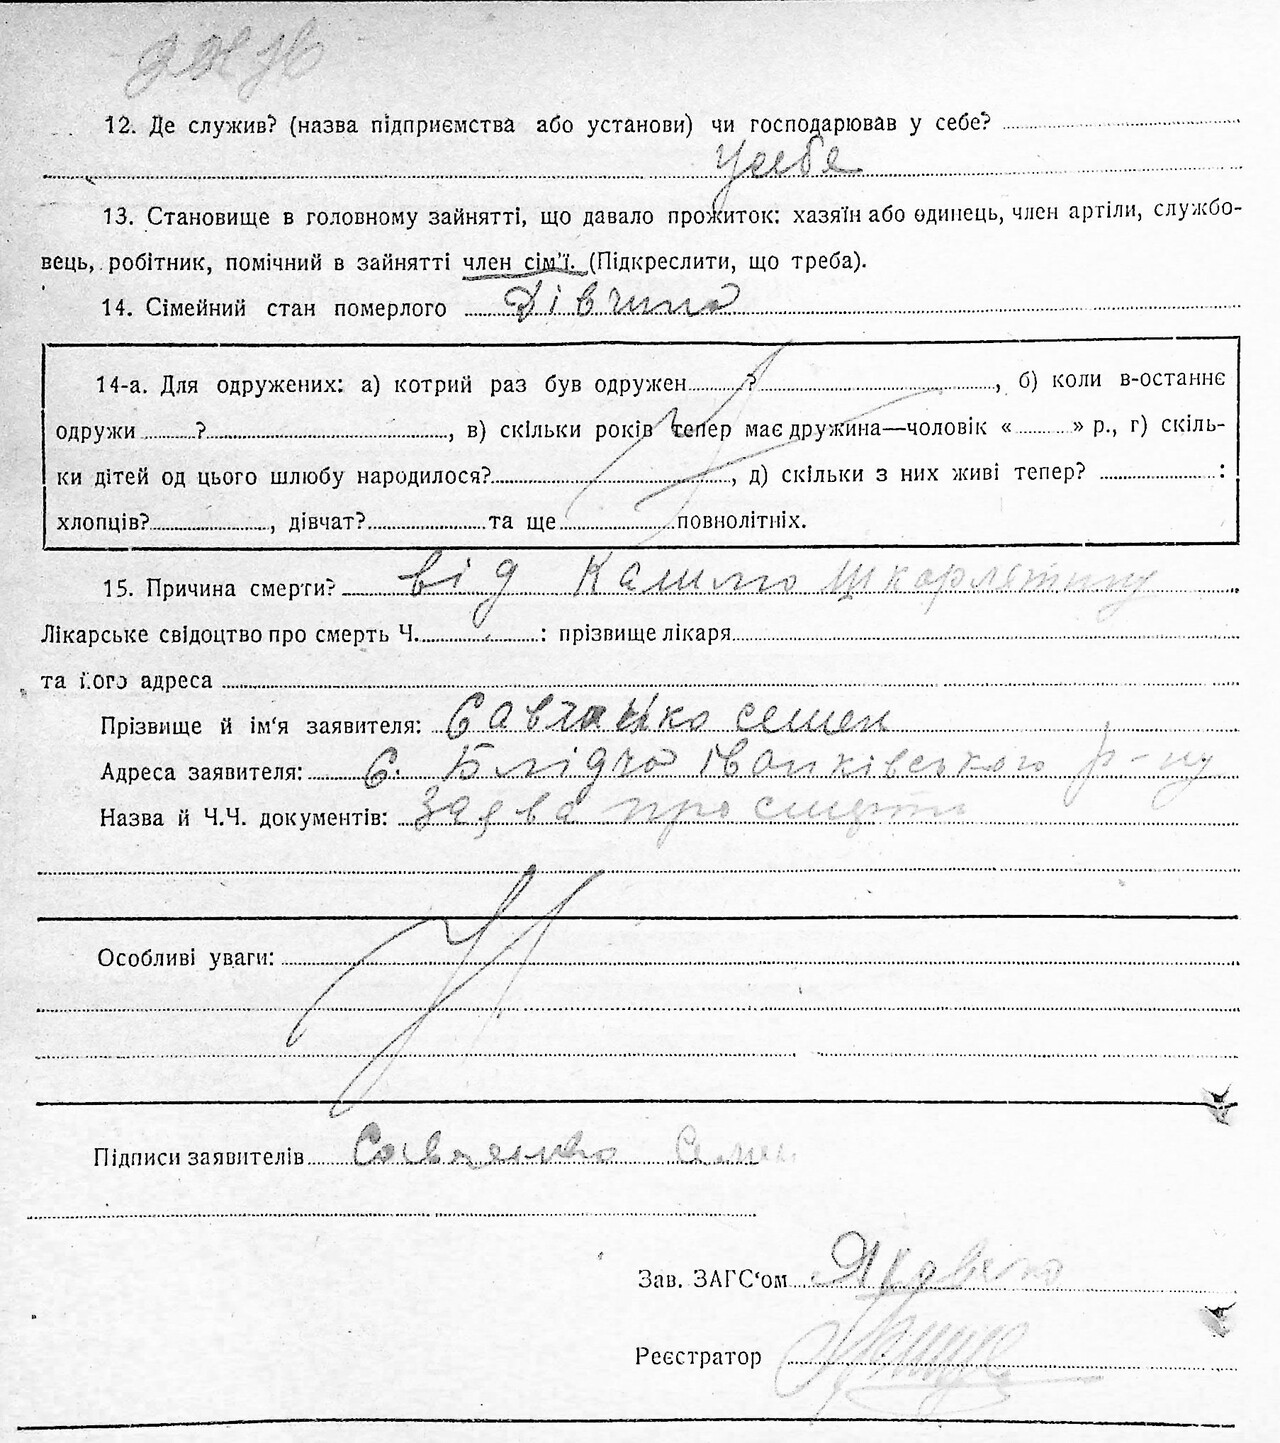 12. Де служив? (назва підприємства або установи) чи господарював у себе?
У себе
13. Становище в головному зайнятті, що давало прожиток: хазяїн або одинець, член артіли, службо-
вець, робітник, помічний в зайнятті член сім'ї. (Підкреслити, що треба).
14. Сімейний стан померлого дівчина
14-а. Для одружених: а) котрий раз був одружен ?, б) коли в-останнє
одружи ?, в) скільки років тепер має дружина—чоловік « » р., г) скіль-
ки дітей од цього шлюбу народилося?, д) скільки з них живі тепер? :
хлопців?, дівчат? та ще повнолітніх.
15. Причина смерти? від шкорлятину
Лікарське свідоцтво про смерть Ч. : прізвище лікаря
та його адреса
Прізвище й ім'я заявителя: Савченко семен
Адреса заявителя: С. Блідча Іванківського р-ну
Назва й Ч.Ч. документів: Заява про смерть
Особливі уваги:
Підписи заявителів Савченко Семен
Зав. ЗАГС'ом
Реєстратор